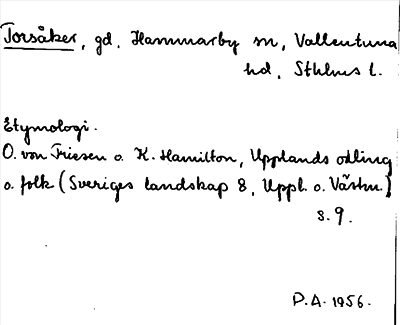 Torsåker, gd, Hammarby sn, Vallentuna
hd, Sthlms l.
Etymologi.
O. von Friesen o. K. Hamilton, Upplands odling
o. folk (Sveriges landskap 8, Uppl. o. Västm.)
s. 9.
P.A. 1956.